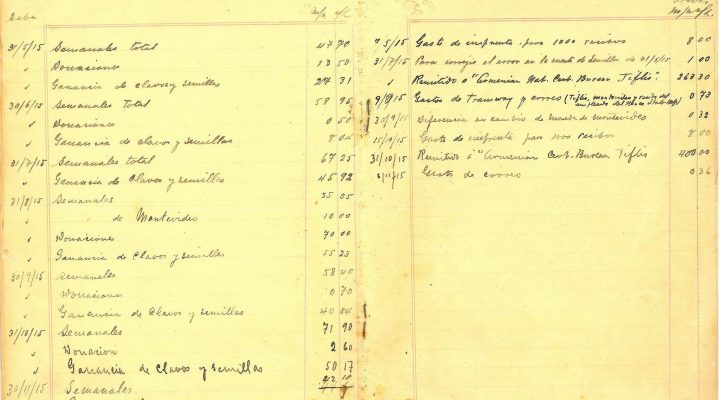 Debe m/n c/l.
31/5/15 Semanales total 47 70
" Donaciones 13 50
" Ganancia de clavos y semillas 27 31
30/6/15 Semanales total 58 95
" Donaciones 0 50
" Ganancia de clavos y semillas 8 05
31/7/15 Semanales total 67 25
" Ganancia de Clavos y semillas 45 92
31/8/15 Semanales 55 05
" do Montevideo 10 00
" Donaciones 70 00
" Ganancia de Clavos y semillas 55 23
30/9/15 Semanales 58 40
" Donaciones 0 70
" Ganancia de Clavos y semillas 40 84
31/10/15 Semanales 71 90
" Donacion 2 60
" Ganancia de Clavos y semillas 50 17
30/11/15 Semanales
5/15 Gasto de imprenta para 1000 recibos 8 00
31/7/15 Para corregir el error en la cuenta de semillas de 31/5/15 1 00
" Remitido á "Armenian Nat. Cent. Bureau Tiflis" 263 30
9/8/15 Gastos de tramway y correo (Tiflis, montevideo y 0 73
30/9/15 Diferencia en cambio de moneda de montevideo 0 32
15/10/15 Gasto de imprenta para 1000 recibos 8 00
31/10/15 Remitido á "Armenian Cent. Bureau Tiflis 400 00
11/15 Gasto de correo 0 36